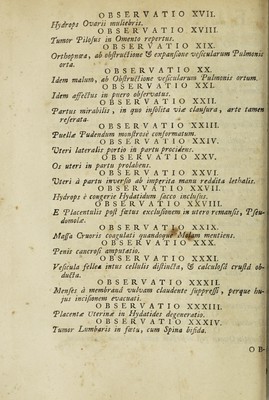 OBSERVATIO XVII.
Hydrops Ovarii muliebris.
OBSERVATIO XVIII.
Tumor Pilosus in Omento repertus.
OBSERVATIO XIX.
Orthopnœa, ab obstructione & expansione vesicularum Pulmonis
orta.
OBSERVATIO XX.
Idem malum, ab Obstructione vesicularum Pulmonis ortum.
OBSERVATIO XXI.
Idem affectus in puero observatus.
OBSERVATIO XXII.
Partus mirabilis, in quo insolita via clausura, arte tamen
reserata.
OBSERVATIO XXIII.
Puellæ Pudendum monstrosè conformatum.
OBSERVATIO XXIV.
Uteri lateralis portio in partu procidens.
OBSERVATIO XXV.
Os uteri in partu prolabens.
OBSERVATIO XXVI.
Uteri à partu inversio ab imperita manu reddita lethalis.
OBSERVATIO XXVII.
Hydrops è congerie Hydatidum sacco inclusus.
OBSERVATIO XXVIII.
E Placentulis post fœtus exclusionem in utero remansit, Pseu-
domola.
OBSERVATIO XXIX.
Massa Cruoris coagulati quandoque Molam mentiens.
OBSERVATIO XXX.
Penis cancrosi amputatio.
OBSERVATIO XXXI.
Vesicula fellea intus cellulis distincta, & calculosâ crustâ ob-
ducta.
OBSERVATIO XXXII.
Menses à membranâ vulvam claudente suppressi, perque hu-
jus incisionem evacuati.
OBSERVATIO XXXIII.
Placentæ Uterinæ in Hydatides degeneratio.
OBSERVATIO XXXIV.
Tumor Lumbaris in fœtu, cum Spina bifida.
OB-